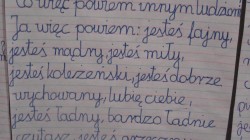 Co więc powiem innym ludziom
Ja więc powiem: jesteś fajny,
jesteś mądry, jesteś miły,
jesteś koleżeński, jesteś dobrze
wychowany, lubię ciebie,
jesteś ładny, bardzo ładnie
czytasz jesteś